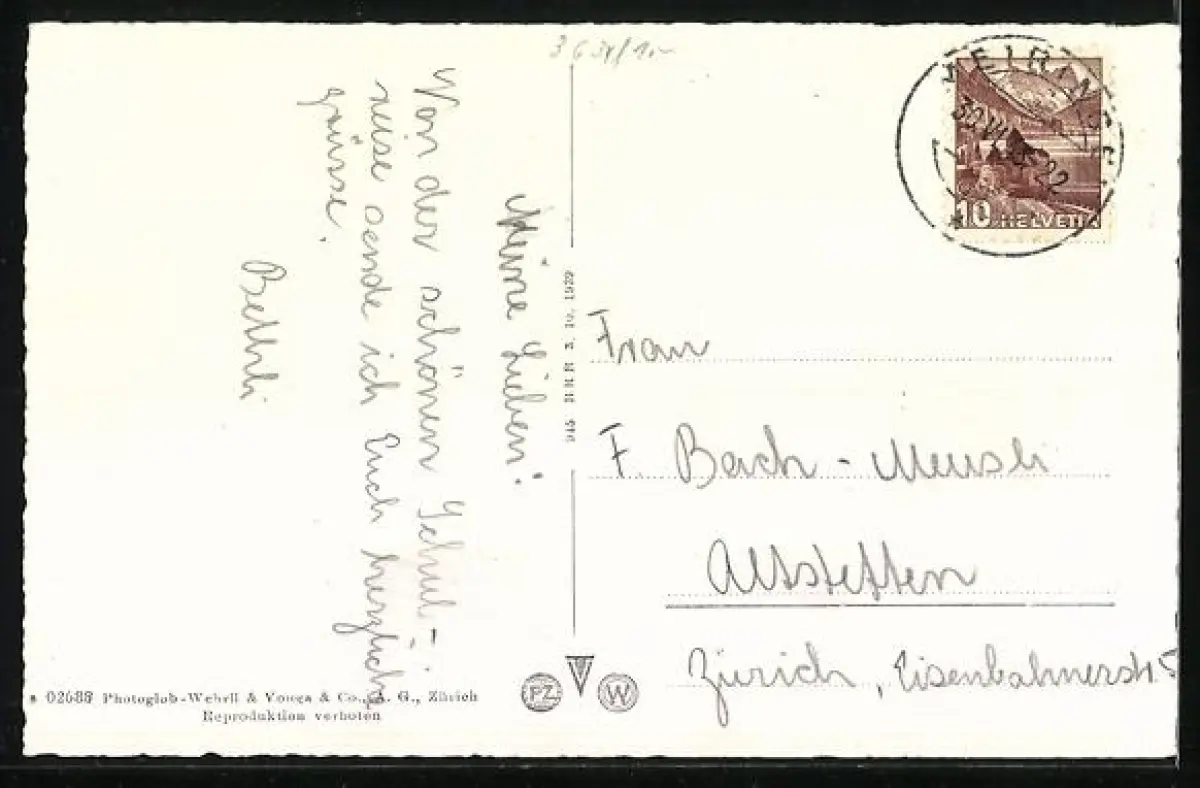 Meine Lieben!
Von der schönen Schul-
reise sende ich Euch herzliche
grüsse.
Bethli
Frau
F. Bach-Meusli
Altstetten
Zürich, Eisenbahnerstr. 5
10 HELVETIA
02688 Photoglob-Wehrli & Vouga & Co., A. G., Zürich
Reproduktion verboten
PZ
W